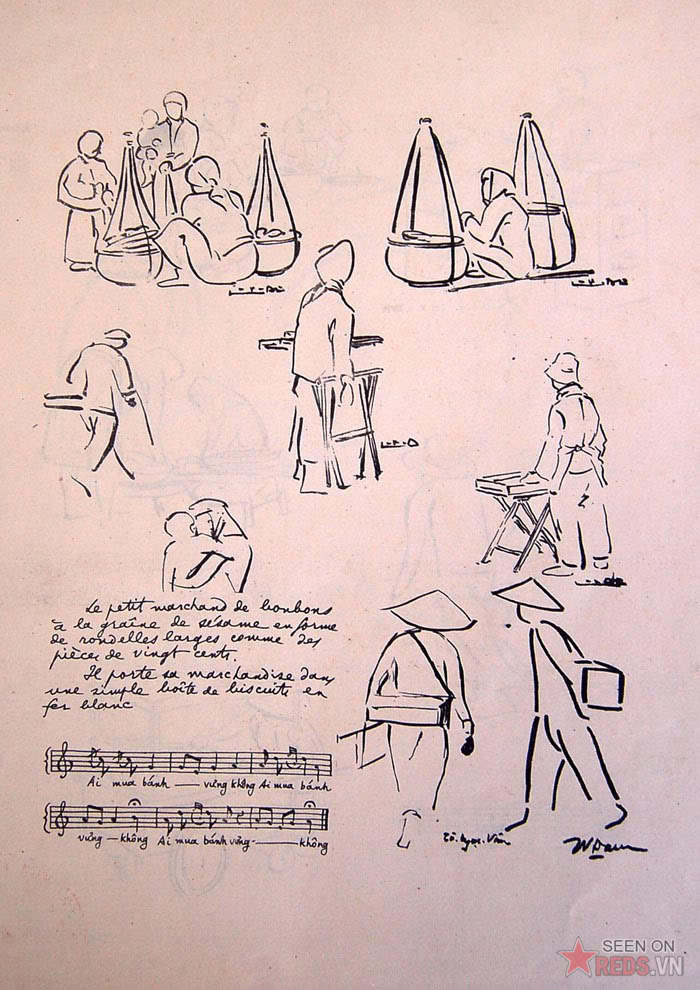 Le petit marchand de bonbons
à la graîne de sésame en forme
de rondelles larges comme des
pièces de vingt cents.
Il porte sa marchandise dans
une simple boîte de biscuits en
fer blanc
Ai mua bánh — vừng không Ai mua bánh
vừng — không Ai mua bánh vừng — không
Tô. Ngọc. Vân
SEEN ON
REDS.VN